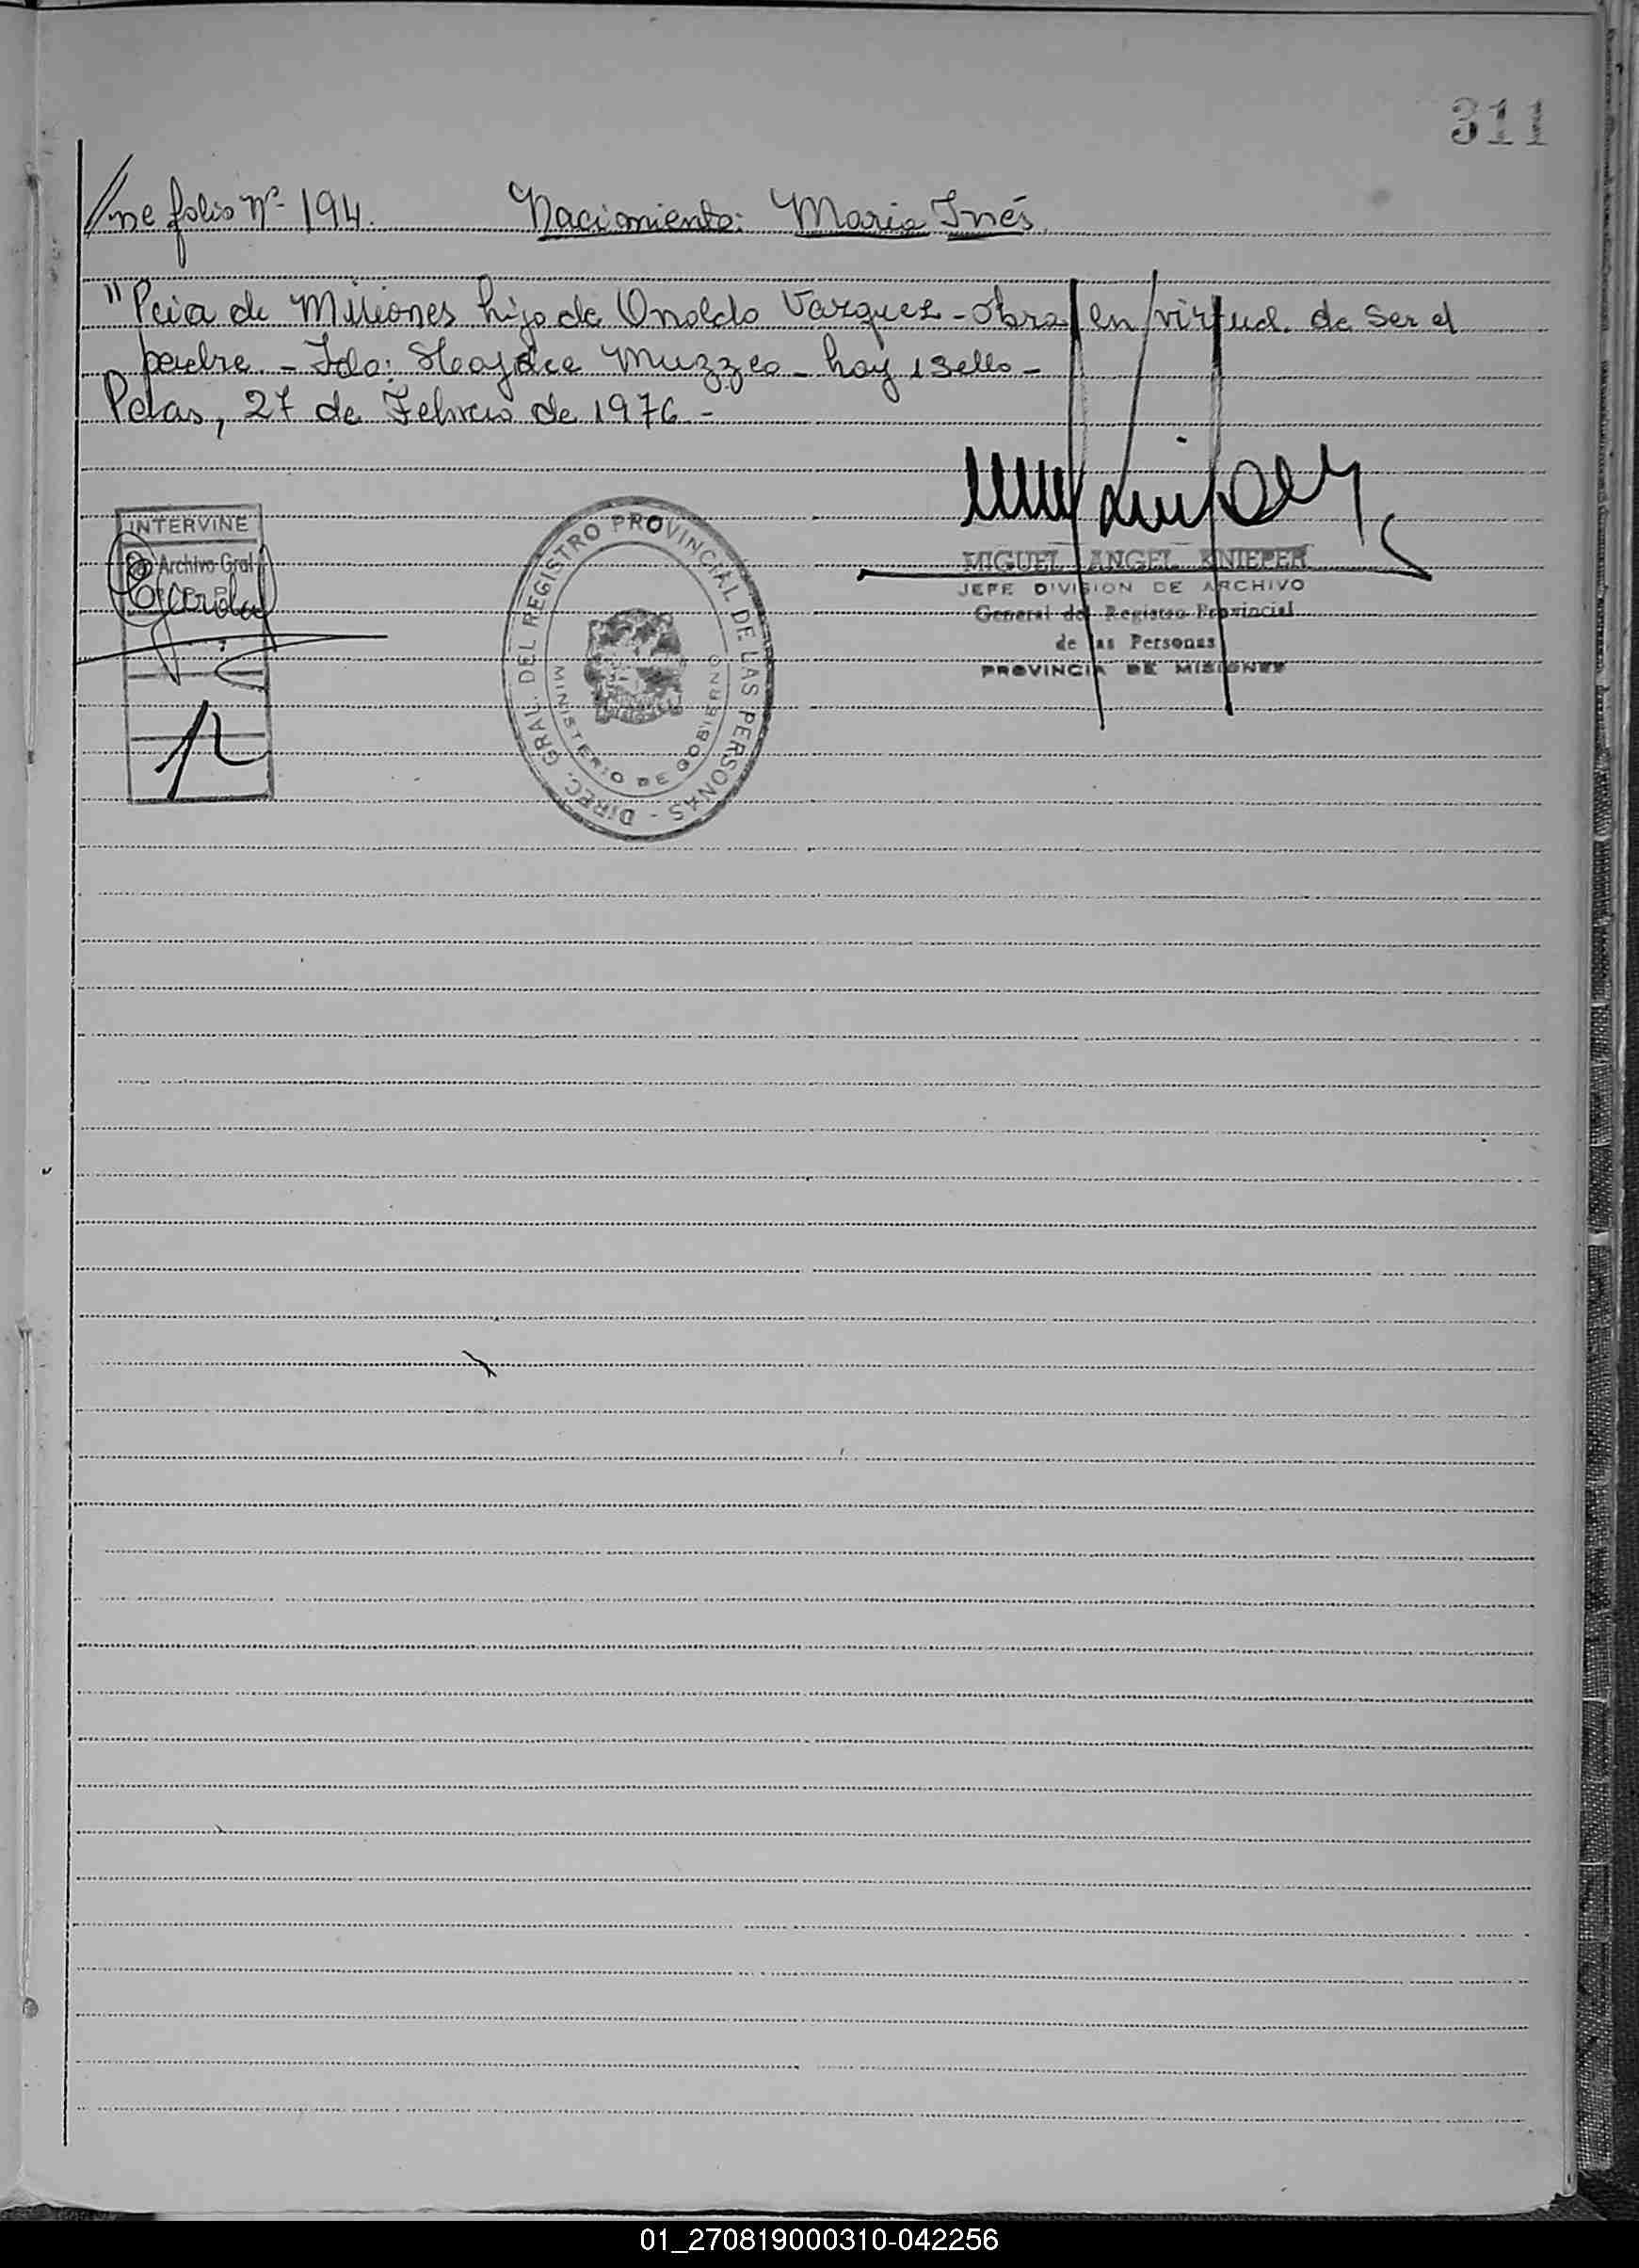 311
//ne folio Nº 194. Nacimiento: Maria Inés.
"Pcia de Misiones hijo de Onoldo Vazquez - obra en virtud de ser el
padre. - Fdo: Muzzeo - hay 1 sello -
Pdas, 27 de Febrero de 1976 -
INTERVINE
Archivo Gral
DIREC. GRAL. DEL REGISTRO PROVINCIAL DE LAS PERSONAS -
MINISTERIO DE GOBIERNO
MIGUEL ANGEL KNIEPER
JEFE DIVISION DE ARCHIVO
General del Registro Provincial
de las Personas
PROVINCIA DE MISIONES
01_270819000310-042256